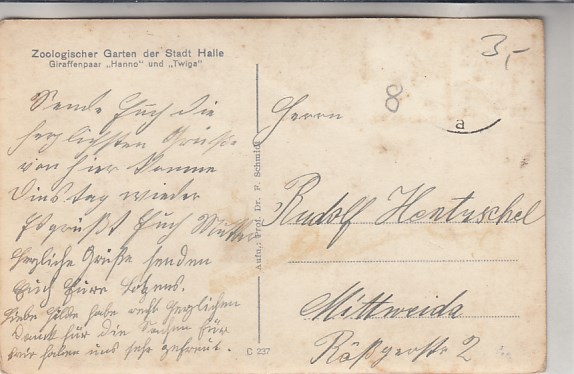 Zoologischer Garten der Stadt Halle
Giraffenpaar „Hanno“ und „Twiga“
Sende Euch die
herzlichsten Grüße
von hier komme
Dienstag wieder
Es grüßt Euch Mutter
Herzliche Grüße senden
Euch Eure
Liebe habe recht herzlichen
Dank für die Sachen für
wir haben uns sehr gefreut.
Aufn.: Prof. Dr. F. Schmidt
C 237
3,-
8
a
Herrn
Rudolf Hentzschel
Mittweida
Rößgerstr 2